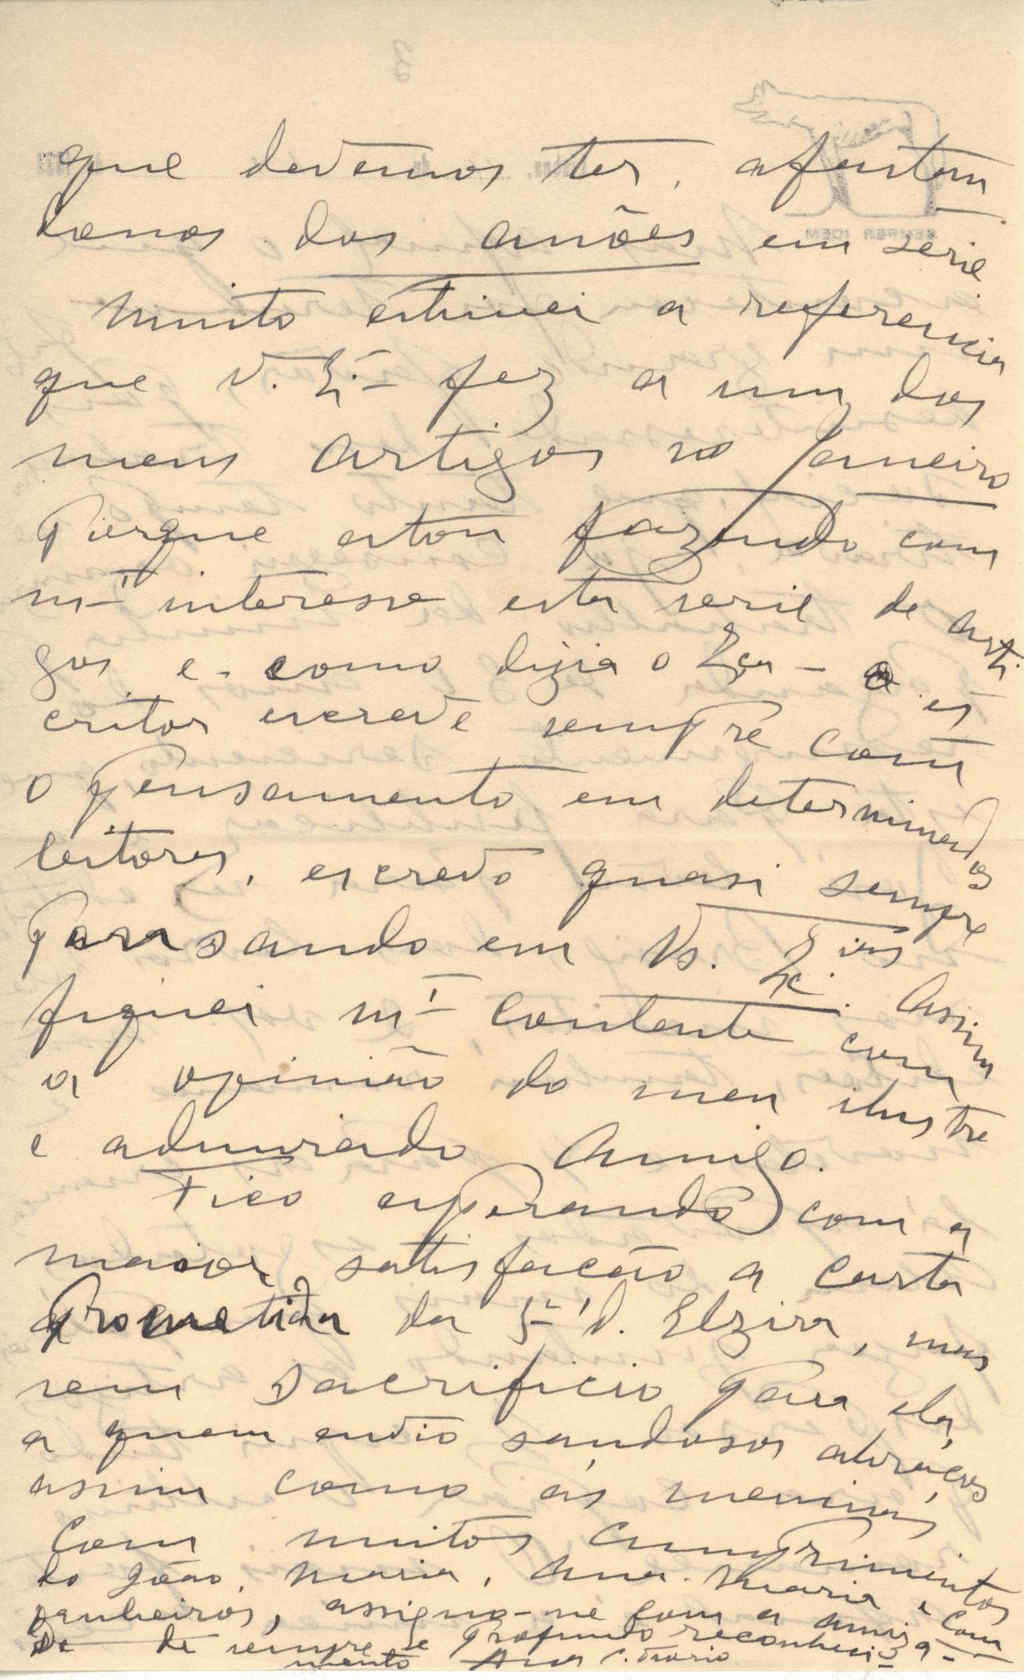 que devemos ter, afastan
donos dos anões em serie
Muito estimei a referencia
que V. Ex.ª fez a um dos
meus artigos no Janeiro
Porque estou fazendo com
mt.º interesse esta serie de arti
gos e - como dizia o Eça - o es
critor escreve sempre com
o pensamento em determinados
leitores, escrevo quasi sempre
pensando em Vs. Ex.ias Assim
fiquei mt.º contente com
a opinião do meu ilustre
e admirado Amigo.
Fico esperando com a
maior satisfação a carta
prometida da Sr.ª D. Elzira, mas
sem sacrificio para ela,
a quem envio saudosos abraços
assim como ás meninas
Com muitos cumprimentos
do João, Maria, Ana Maria e com
panheiros, assigno-me com a amiza-
de de sempre e profundo reconheci-
mento Ana
SEMPER IDEM